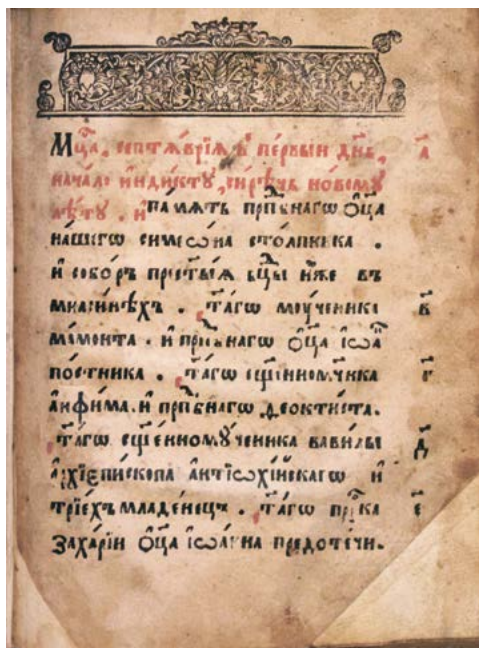 Мⷭ҇ца, септѧ́врїѧ в̾ пе́рвыи дн҃ь, а҃
нача́ло и҆нди́кту, си́рѣчь но́вому
лѣ́ту. и҆ па́мѧть прпⷣбнагѡ ѻ҆ц҃а
на́шегѡ симеѡ́на сто́лпника.
и҆ собо́ръ прест҃ы́ѧ бц҃ы и҆́же въ
миаси́нѣхъ. то́гѡ моу́ченика в҃
ма́монта. и҆ прпⷣбнагѡ ѻ҆ц҃а і҆ѡа́
по́стника. то́гѡ сщ҃е́нномчн҃ка г҃
а҆нфи́ма. и҆ прпⷣбнагѡ ѳеокти́ста.
то́гѡ сщ҃е́нному́ченика вави́лы д҃
а҆рхїепи́скопа а҆нтїѡхі́искагѡ и҆
трїе́хъ младе́нецъ. то́гѡ прⷪ҇ка е҃
заха́рїи ѻ҆ц҃а і҆ѡа́нна предоте́чи.